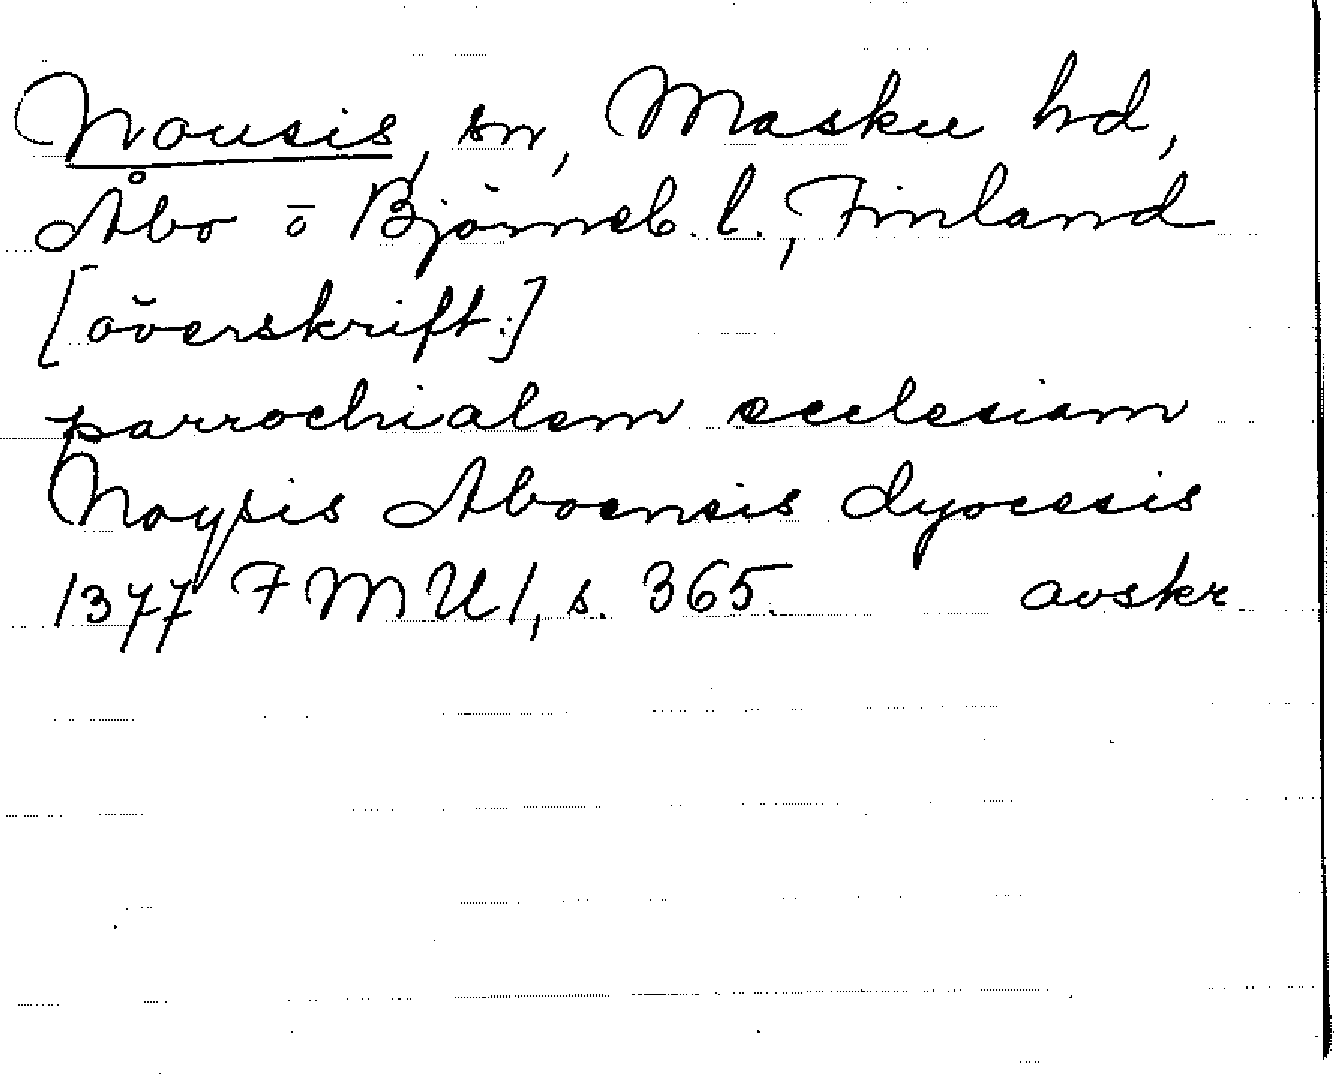 Nousis, sn, Masku hd,
Åbo ō Björneb. l., Finland
[överskrift:]
parrochialem ecclesiam
Noysis Aboensis dyocesis
1377 FMU 1, s. 365. avskr